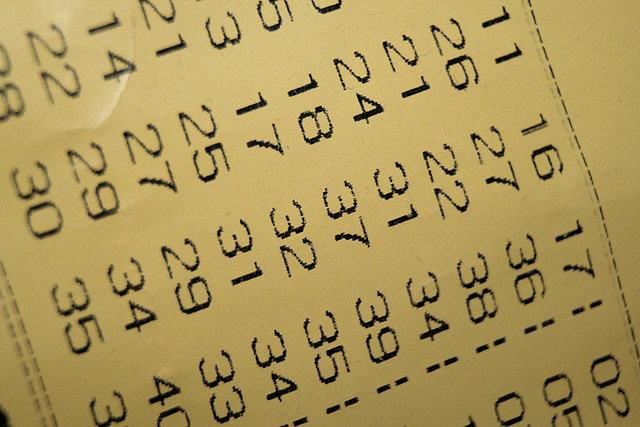 11 16 17 02
26 27 36 05
21 22 38
24 31 34
18 37 39
17 32 35
21 25 31 34
14 27 29 33
22 29 34 40
30 35